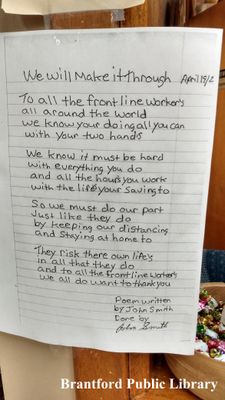 We will Make it Through April 15/2
To all the front line workers
all around the world
we know your doing all you can
with your two hands
We know it must be hard
with everything you do
and all the hours you work
with the life your saving to
So we must do our part
Just like they do
by keeping our distancing
and staying at home to
They risk there own life's
in all that they do
and to all the front line workers
we all do want to thank you
Poem written
by John Smith
Done by
John Smith
Brantford Public Library